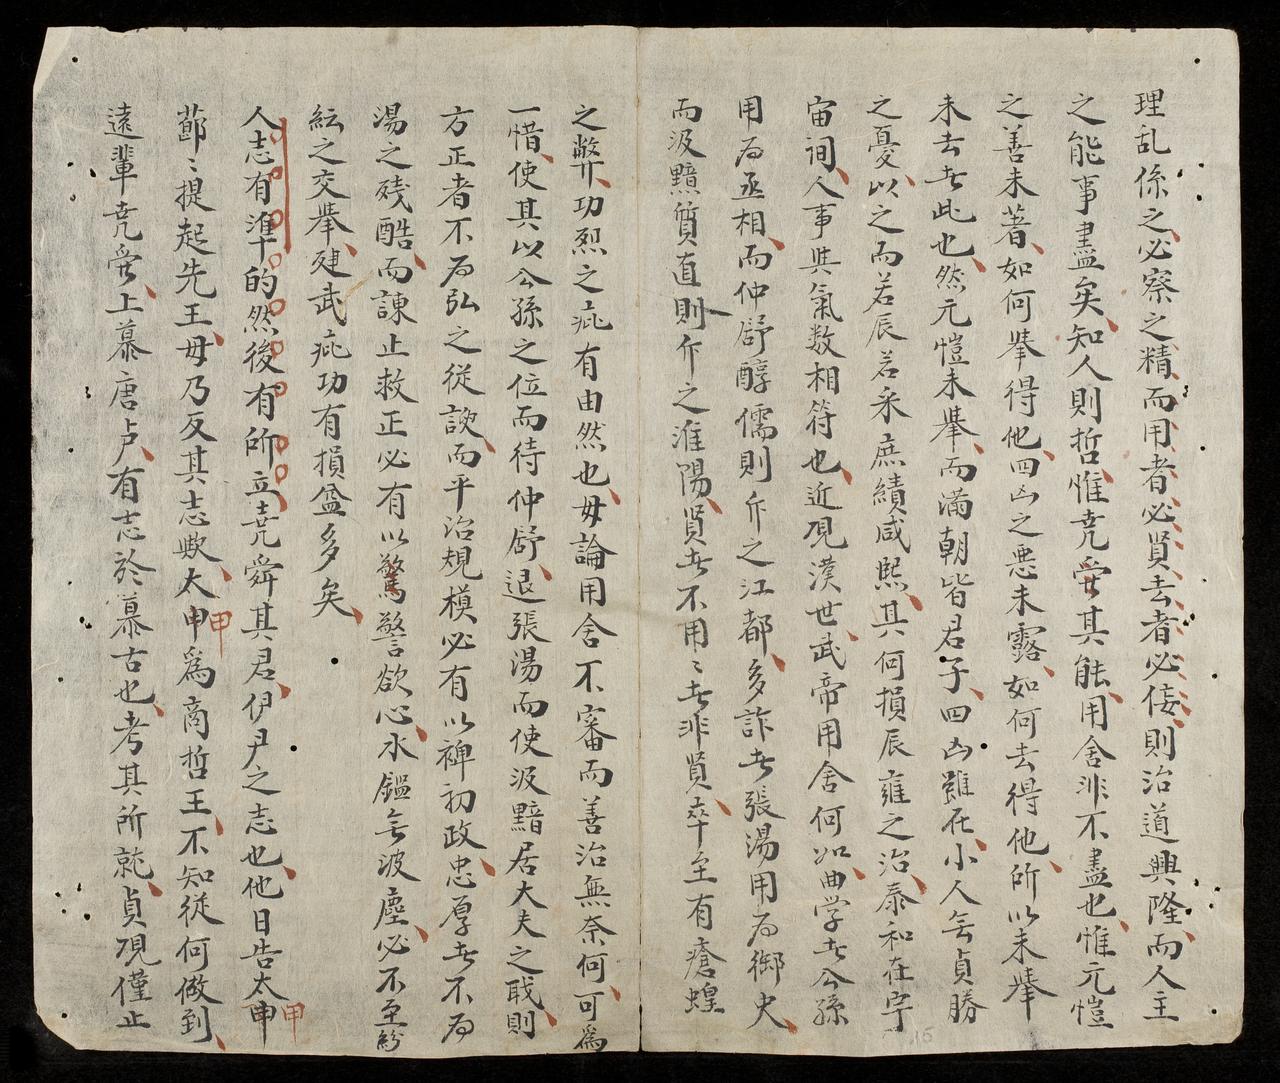 理乱係之必察之精而用者必賢去者必佞則治道興隆而人主
之能事盡矣知人則哲惟尭舜其能用舍非不盡也惟元愷
之善未著如何举得他四凶之悪未露如何去得他所以未举
未去者此也然元愷未举而滿朝皆君子四凶雖在小人無貞勝
之憂以之而若辰若采庶績咸熙其何損辰雍之治泰和在宇
宙间人事與氣数相符也近覌漢世武帝用舍何如曲学者公孫
用为丞相而仲舒醇儒則斥之江都多詐者張湯用为御史
而汲黯質直則斥之淮陽賢者不用〻者非賢卒至有瘡蝗
之弊功烈之疵有由然也毋論用舍不審而善治無奈何可為
一惜使其以公孫之位而待仲舒退張湯而使汲黯居大夫之職則
方正者不为弘之從諛而平治規模必有以裨初政忠厚者不为
湯之残酷而諫止救正必有以驚警欲心水鑑無波塵必不至紛
紜之交举建武疵功有損益多矣
人志有準的然後有所立尭舜其君伊尹之志也他日告太申甲
節〻提起先王毋乃反其志歟太申甲為商哲王不知從何做到
遠輩尭舜上慕唐虞有志於慕古也考其所就貞覌僅止